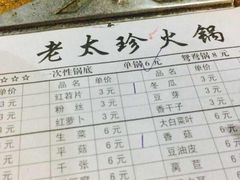 老太珍火锅
☆☆☆ 一次性锅底 单锅6元 鸳鸯锅8元
品名 单价 品名 单价
红苕片 3元 冬瓜 3元
粉丝 3元 豆芽 3元
红萝卜 3元 香干子 3元
生菜 6元 大白菜叶
平菇 6元 香菇 6元
千张 6元 豆油皮
6元 莴苣